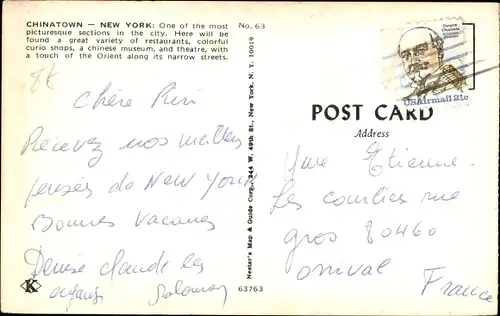 CHINATOWN — NEW YORK: One of the most
picturesque sections in the city. Here will be
found a great variety of restaurants, colorful
curio shops, a chinese museum, and theatre, with
a touch of the Orient along its narrow streets.
No. 63
Chère
Recevez nos meilleures
pensées de NEW YORK
Bonnes vacances
Denise claude les
enfants
K
Nester's Map & Guide Corp., 244 W. 49th St., New York, N. Y. 10019
63763
Octave Chanute
USAirmail 21c
POST CARD
Address
Mme Etienne
Les courlies rue
gros 80460
onival
France